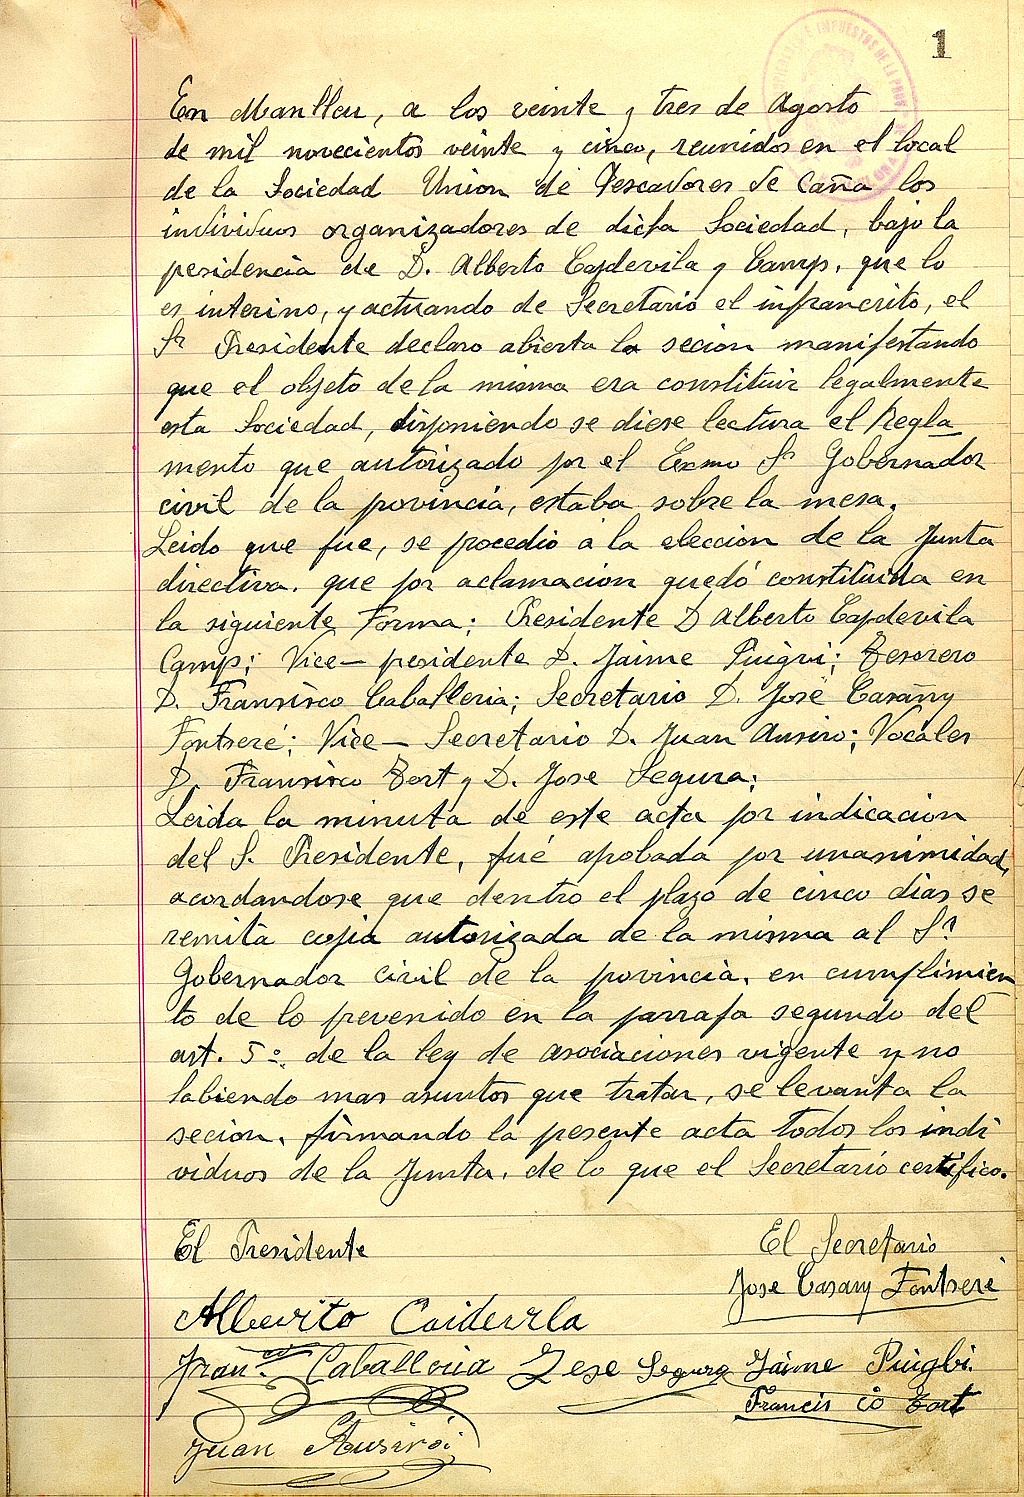 1
IMPUESTOS DE LA PROV
En Manlleu, a los veinte y tres de Agosto
de mil novecientos veinte y cinco, reunidos en el local
de la Sociedad Union de Pescadores de Caña los
individuos organizadores de dicha Sociedad, bajo la
presidencia de D. Alberto Capdevila y Camp, que lo
es interino, y actuando de Secretario el infrancrito, el
Sr Presidente declaro abierta la secion manifestando
que el objeto de la misma era constituir legalmente
esta Sociedad, disponiendo se diese lectura el Regla
mento que autorizado por el Exmo Sr Gobernador
civil de la provincia, estaba sobre la mesa.
Leido que fue, se procedio a la eleccion de la Junta
directiva. que por aclamacion quedó constituida en
la siguiente Forma; Presidente D Alberto Capdevila
Camp; Vice-presidente D. Jaime Puigvi; Tesorero
D. Fransisco Caballeria; Secretario D. José Casany
Fontseré; Vice-Secretario D. Juan Ausiro; Vocales
D. Fransisco Tort y D. Jose Segura;
Leida la minuta de este acta por indicacion
del S. Presidente, fué aprobada por unanimidad,
acordandose que dentro el plazo de cinco dias se
remita copia autorizada de la misma al Sr
Gobernador civil de la provincia, en cumplimien
to de lo prevenido en la parrafa segundo del
art. 5º de la ley de asociaciones vigente y no
habiendo mas asuntos que tratar, se levanta la
secion, firmando la presente acta todos los indi
viduos de la Junta, de lo que el Secretario certifico.
El Presidente
El Secretario
Jose Casany Fontseré
Alberto Caidevila
Fran.co Caballeria Jose Segura Jaime Puigbi
Francisco Tort
Juan Ausiroi